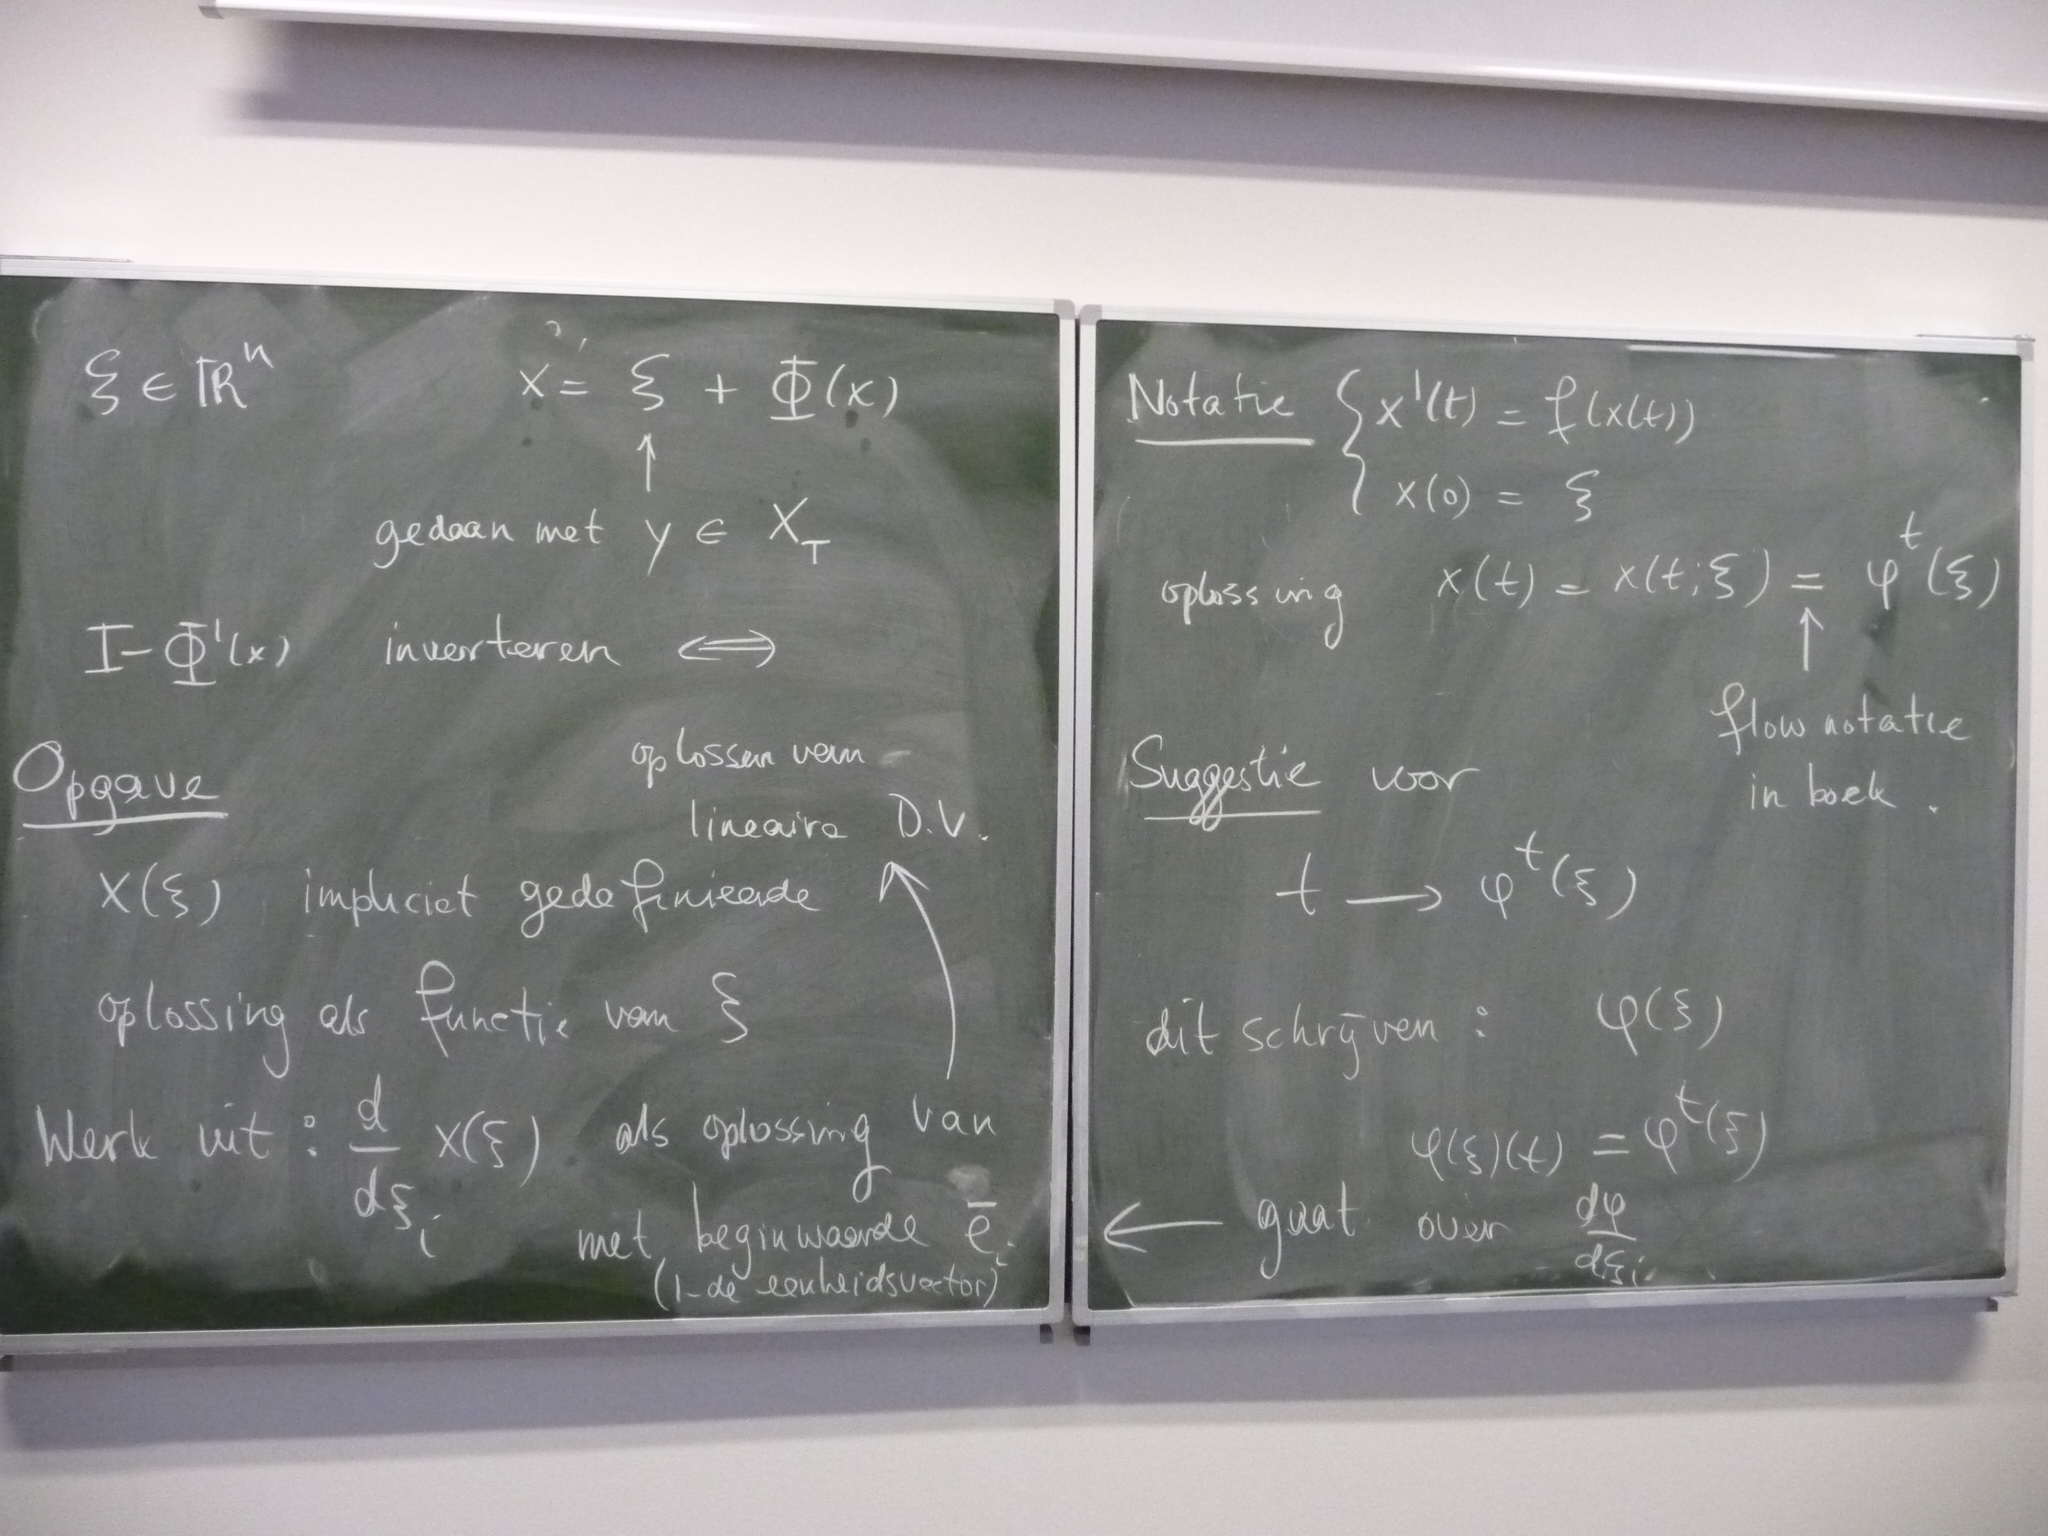 ξ ∈ ℝⁿ x = ξ + Φ(x)
↑
gedaan met y ∈ X_T
I - Φ'(x) inverteren ⇔
oplossen van
lineaire D.V.
Opgave
x(ξ) impliciet gedefinieerde
oplossing als functie van ξ
Werk uit: d/dξ_i x(ξ) als oplossing van
met beginwaarde ē_i
(i-de eenheidsvector)
Notatie { x'(t) = f(x(t))
x(0) = ξ
oplossing x(t) = x(t;ξ) = φᵗ(ξ)
↑
flow notatie
in boek.
Suggestie voor
t → φᵗ(ξ)
dit schrijven: φ(ξ)
φ(ξ)(t) = φᵗ(ξ)
← gaat over dφ/dξ_i